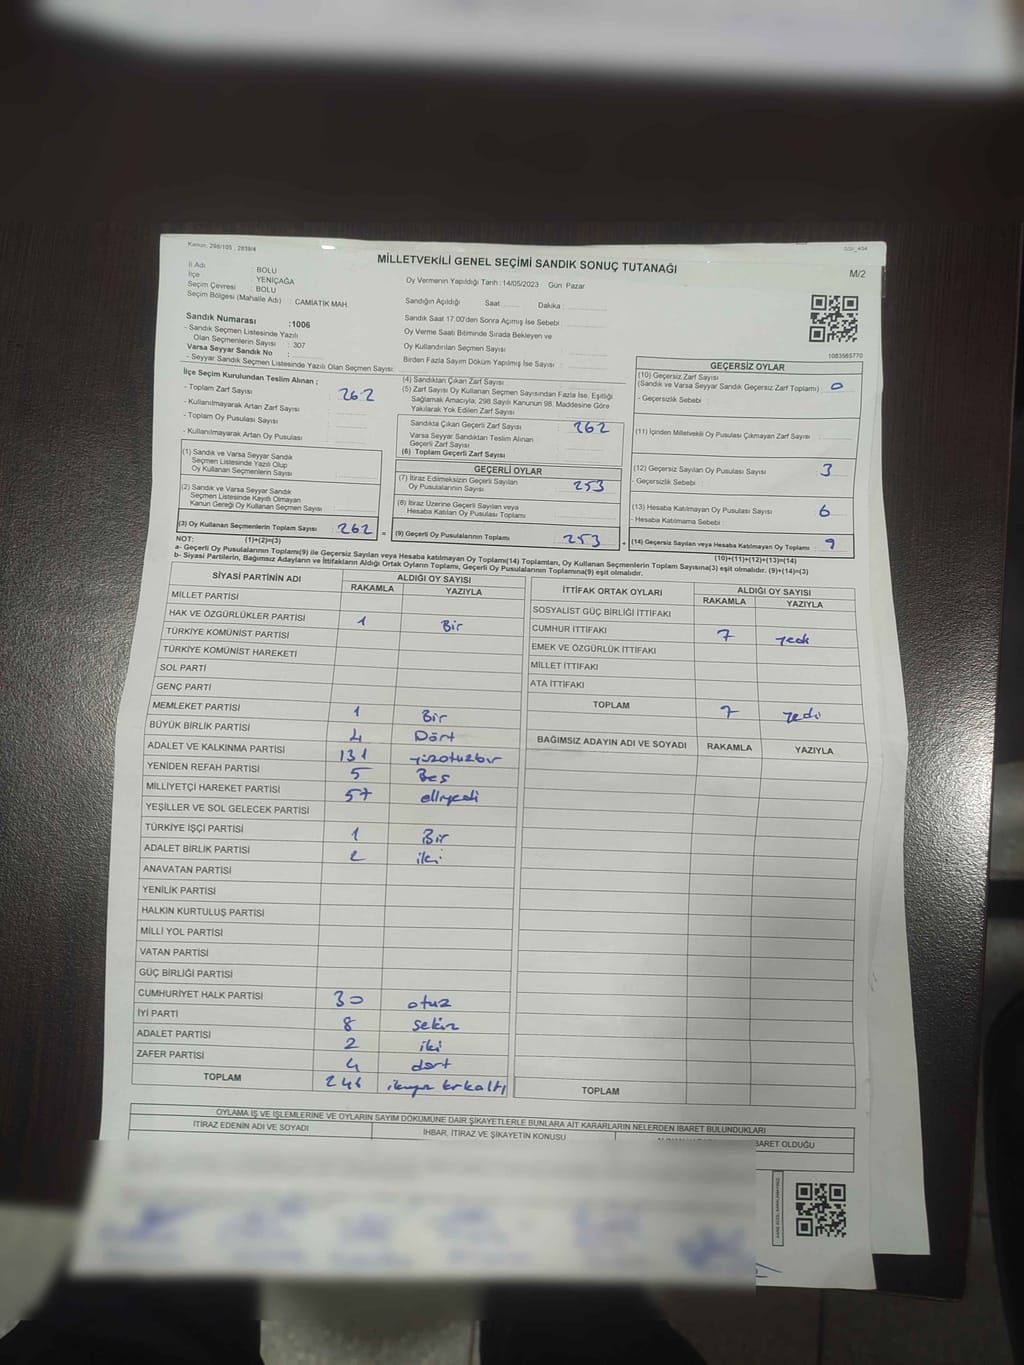 Kanun: 298/105 ; 2839/4
MİLLETVEKİLİ GENEL SEÇİMİ SANDIK SONUÇ TUTANAĞI
M/2
İl Adı : BOLU
İlçe : YENİÇAĞA
Seçim Çevresi : BOLU
Seçim Bölgesi (Mahalle Adı) : CAMİATİK MAH.
Oy Vermenin Yapıldığı Tarih : 14/05/2023 Gün: Pazar
Sandığın Açıldığı Saat: Dakika :
Sandık Saat 17:00'den Sonra Açımış İse Sebebi :
Oy Verme Saati Bitiminde Sırada Bekleyen ve
Oy Kullandırılan Seçmen Sayısı :
Birden Fazla Sayım Döküm Yapılmış İse Sayısı :
1083565770
Sandık Numarası :1006
- Sandık Seçmen Listesinde Yazılı
Olan Seçmenlerin Sayısı : 307
Varsa Seyyar Sandık No :
- Seyyar Sandık Seçmen Listesinde Yazılı Olan Seçmen Sayısı:
İlçe Seçim Kurulundan Teslim Alınan ;
- Toplam Zarf Sayısı : 262
- Kullanılmayarak Artan Zarf Sayısı :
- Toplam Oy Pusulası Sayısı :
- Kullanılmayarak Artan Oy Pusulası :
(1) Sandık ve Varsa Seyyar Sandık
Seçmen Listesinde Yazılı Olup
Oy Kullanan Seçmenlerin Sayısı :
(2) Sandık ve Varsa Seyyar Sandık
Seçmen Listesinde Kayıtlı Olmayan
Kanun Gereği Oy Kullanan Seçmen Sayısı :
(3) Oy Kullanan Seçmenlerin Toplam Sayısı : 262 =
(4) Sandıktan Çıkan Zarf Sayısı :
(5) Zarf Sayısı Oy Kullanan Seçmen Sayısından Fazla İse, Eşitliği
Sağlamak Amacıyla; 298 Sayılı Kanunun 98. Maddesine Göre
Yakılarak Yok Edilen Zarf Sayısı :
Sandıkta Çıkan Geçerli Zarf Sayısı : 262
Varsa Seyyar Sandıktan Teslim Alınan
Geçerli Zarf Sayısı :
(6) Toplam Geçerli Zarf Sayısı :
GEÇERLİ OYLAR
(7) İtiraz Edilmeksizin Geçerli Sayılan
Oy Pusulalarının Sayısı : 253
(8) İtiraz Üzerine Geçerli Sayılan veya
Hesaba Katılan Oy Pusulası Toplamı :
(9) Geçerli Oy Pusulalarının Toplamı : 253 +
GEÇERSİZ OYLAR
(10) Geçersiz Zarf Sayısı
(Sandık ve Varsa Seyyar Sandık Geçersiz Zarf Toplamı) : 0
- Geçersizlik Sebebi :
(11) İçinden Milletvekili Oy Pusulası Çıkmayan Zarf Sayısı :
(12) Geçersiz Sayılan Oy Pusulası Sayısı : 3
- Geçersizlik Sebebi :
(13) Hesaba Katılmayan Oy Pusulası Sayısı : 6
- Hesaba Katılmama Sebebi :
(14) Geçersiz Sayılan veya Hesaba Katılmayan Oy Toplamı : 9
NOT: (1)+(2)=(3) (10)+(11)+(12)+(13)=(14)
a- Geçerli Oy Pusulalarının Toplamı(9) ile Geçersiz Sayılan veya Hesaba katılmayan Oy Toplamı(14) Toplamları, Oy Kullanan Seçmenlerin Toplam Sayısına(3) eşit olmalıdır. (9)+(14)=(3)
b- Siyasi Partilerin, Bağımsız Adayların ve İttifakların Aldığı Ortak Oyların Toplamı, Geçerli Oy Pusulalarının Toplamına(9) eşit olmalıdır.
SİYASİ PARTİNİN ADI ALDIĞI OY SAYISI
RAKAMLA YAZIYLA
MİLLET PARTİSİ
HAK VE ÖZGÜRLÜKLER PARTİSİ 1 Bir
TÜRKİYE KOMÜNİST PARTİSİ
TÜRKİYE KOMÜNİST HAREKETİ
SOL PARTİ
GENÇ PARTİ
MEMLEKET PARTİSİ 1 Bir
BÜYÜK BİRLİK PARTİSİ 4 Dört
ADALET VE KALKINMA PARTİSİ 131 yüzotuzbir
YENİDEN REFAH PARTİSİ 5 Beş
MİLLİYETÇİ HAREKET PARTİSİ 57 elliyedi
YEŞİLLER VE SOL GELECEK PARTİSİ
TÜRKİYE İŞÇİ PARTİSİ 1 Bir
ADALET BİRLİK PARTISI 2 iki
ANAVATAN PARTİSİ
YENİLİK PARTİSİ
HALKIN KURTULUŞ PARTİSİ
MİLLİ YOL PARTİSİ
VATAN PARTİSİ
GÜÇ BİRLİĞİ PARTİSİ
CUMHURİYET HALK PARTİSİ 30 otuz
İYİ PARTİ 8 sekiz
ADALET PARTİSİ 2 iki
ZAFER PARTİSİ 4 dört
TOPLAM 246 ikiyüz kırkaltı
İTTİFAK ORTAK OYLARI ALDIĞI OY SAYISI
RAKAMLA YAZIYLA
SOSYALİST GÜÇ BİRLİĞİ İTTİFAKI
CUMHUR İTTİFAKI 7 yedi
EMEK VE ÖZGÜRLÜK İTTİFAKI
MİLLET İTTİFAKI
ATA İTTİFAKI
TOPLAM 7 yedi
BAĞIMSIZ ADAYIN ADI VE SOYADI RAKAMLA YAZIYLA
TOPLAM
OYLAMA İŞ VE İŞLEMLERİNE VE OYLARIN SAYIM DÖKÜMÜNE DAİR ŞİKAYETLERLE BUNLARA AİT KARARLARIN NELERDEN İBARET BULUNDUKLARI
İTİRAZ EDENİN ADI VE SOYADI İHBAR, İTİRAZ VE ŞİKAYETİN KONUSU
BARET OLDUĞU